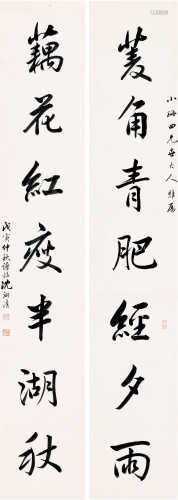 小海四兄世大人雅属
菱角青肥經夕雨
藕花紅瘦半湖秋
戊寅仲秋